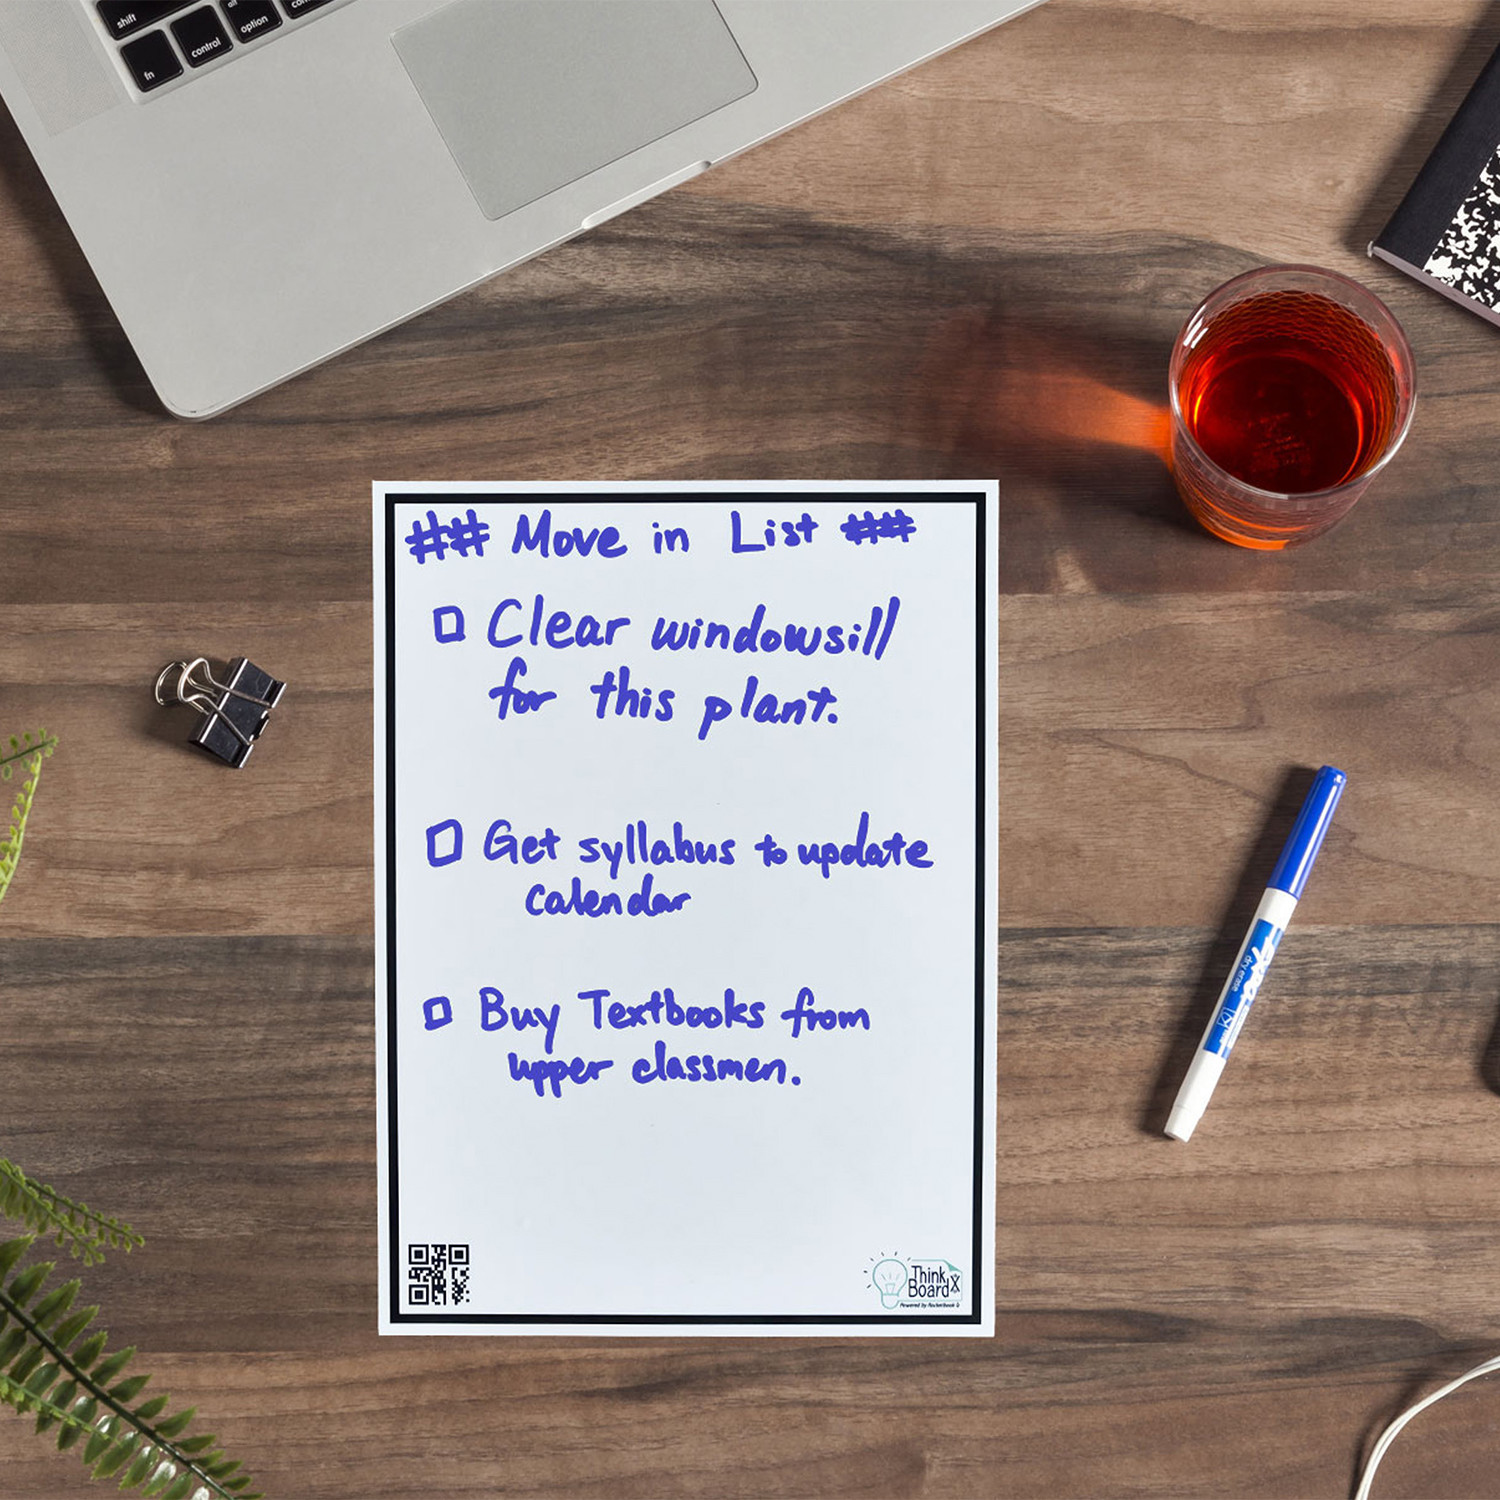 shift
fn
control
alt
option
## Move in List ##
□ Clear windowsill
for this plant.
□ Get syllabus to update
calendar
□ Buy Textbooks from
upper classmen.
Think
Board X
Powered by Rocketbook
EXPO
dry erase